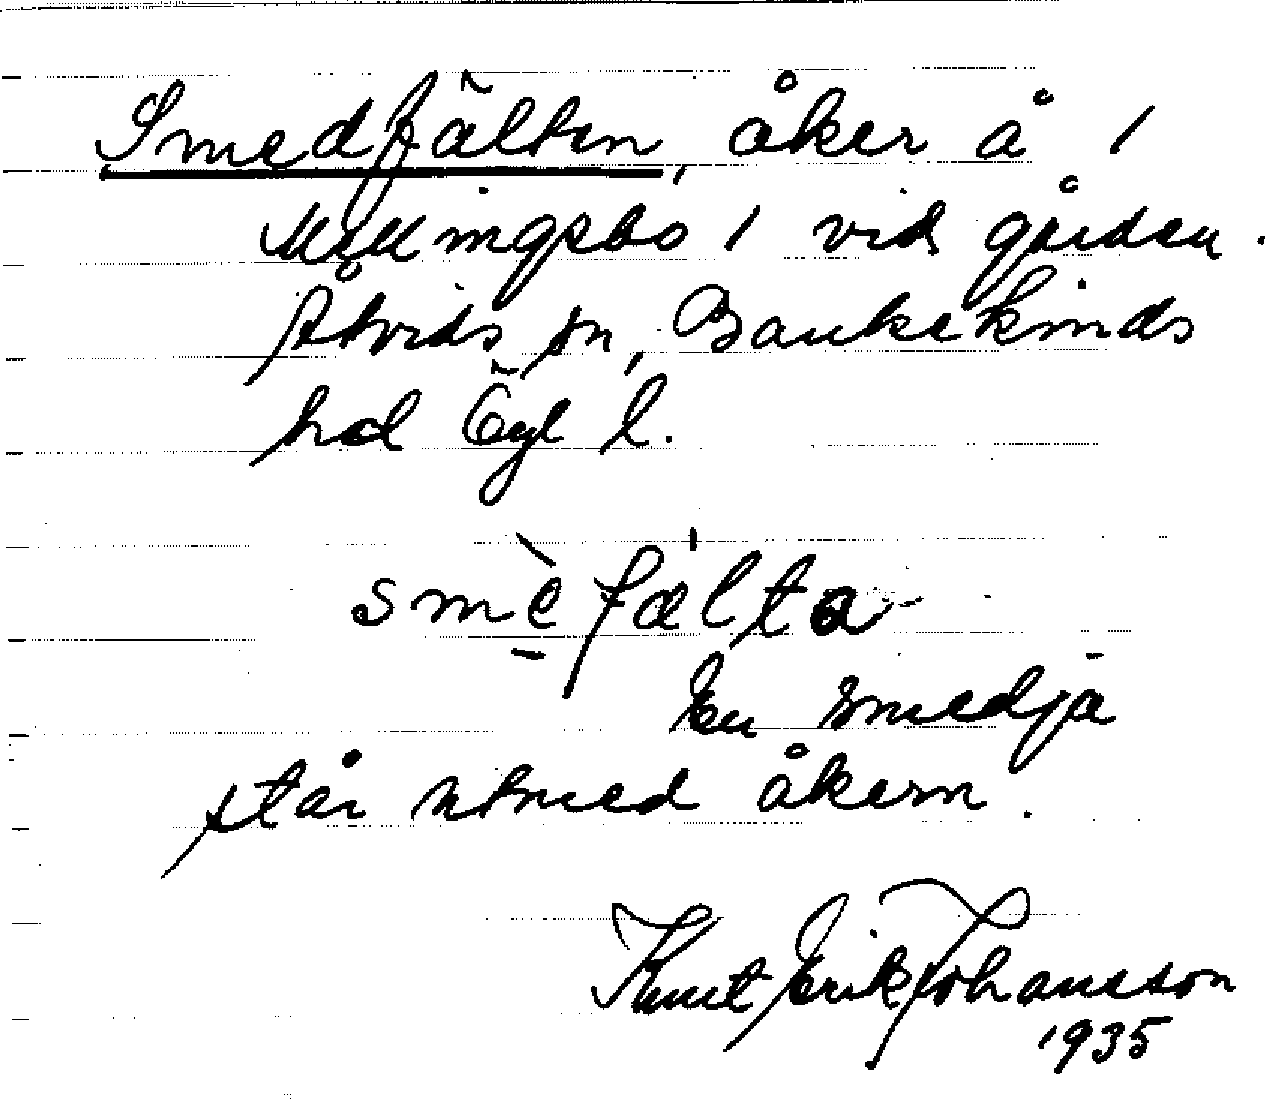 Smedfälten, åker å 1
Mållingsbo 1 vid gården.
Åtvids sn, Bankekinds
hd Ög l.
smèfälta
En smedja
står utmed åkern.
Knut Erik Johansson
1935